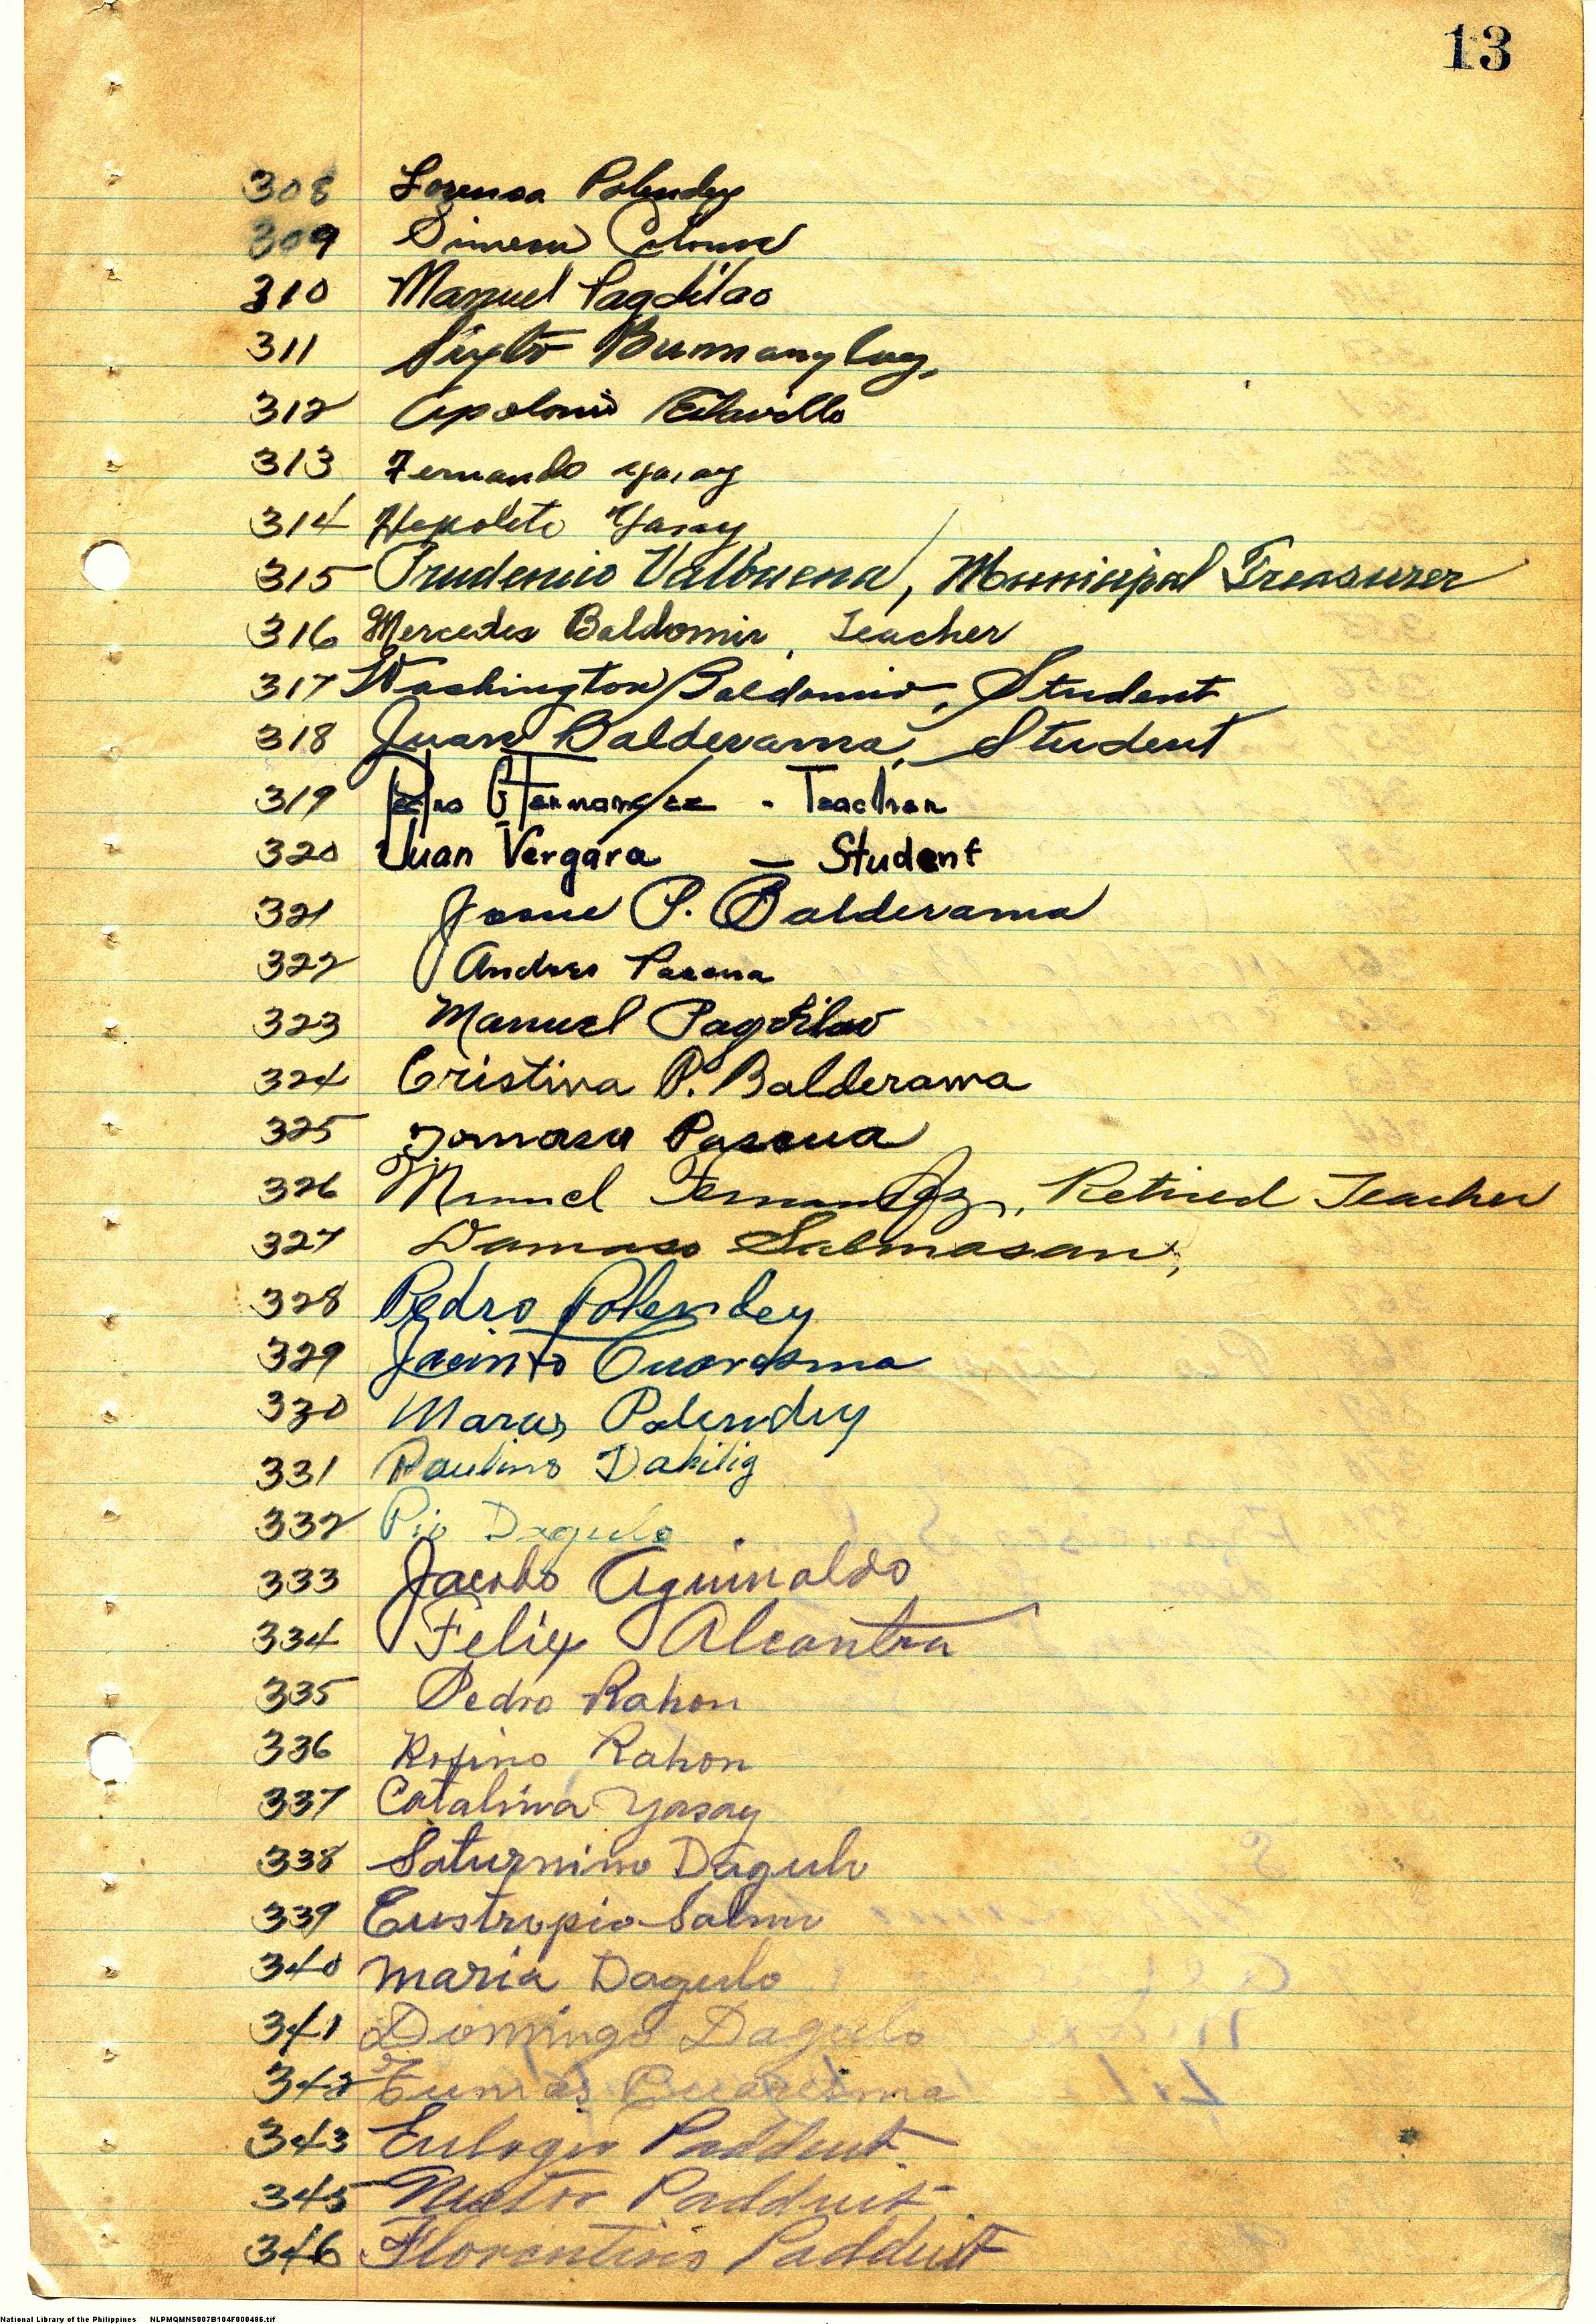 13
308 Lorensa Polendey
309 Simeon
310 Manuel Pagdilao
311 Sixto Bumanglag,
312 Apolonio
313 Fernando Yasay
314 Hepolito Yasay
315 Prudencio Valbuena, Municipal Treasurer
316 Mercedes Baldomir, Teacher
317 Washington Baldomir, Student
318 Juan Balderama, Student
319 Pedro G. Fernandez - Teacher
320 Juan Vergara — Student
321 Josue P. Balderama
322 Andres Pascua
323 Manuel Pagdilao
324 Cristina P. Balderama
325 Tomasa Pascua
326 Manuel Fernandez, Retired Teacher
327 Damaso Salmasan,
328 Pedro Polendey
329 Jacinto Cuaresma
330 Marcos Polendey
331 Paulino Dahilig
332 Pio Dagulo
333 Jacobo Aguinaldo
334 Felix Alcantra
335 Pedro Rahon
336 Rofino Rahon
337 Catalina Yasay
338 Saturnino Dagulo
339 Eustropio
340 Maria Dagulo
341 Domingo Dagulo
342 Tumas Cuaresma
343 Eulogio Padduit
345 Nestor Padduit
346 Florentino Padduit
National Library of the Philippines NLPMQMNS007B104F000486.tif